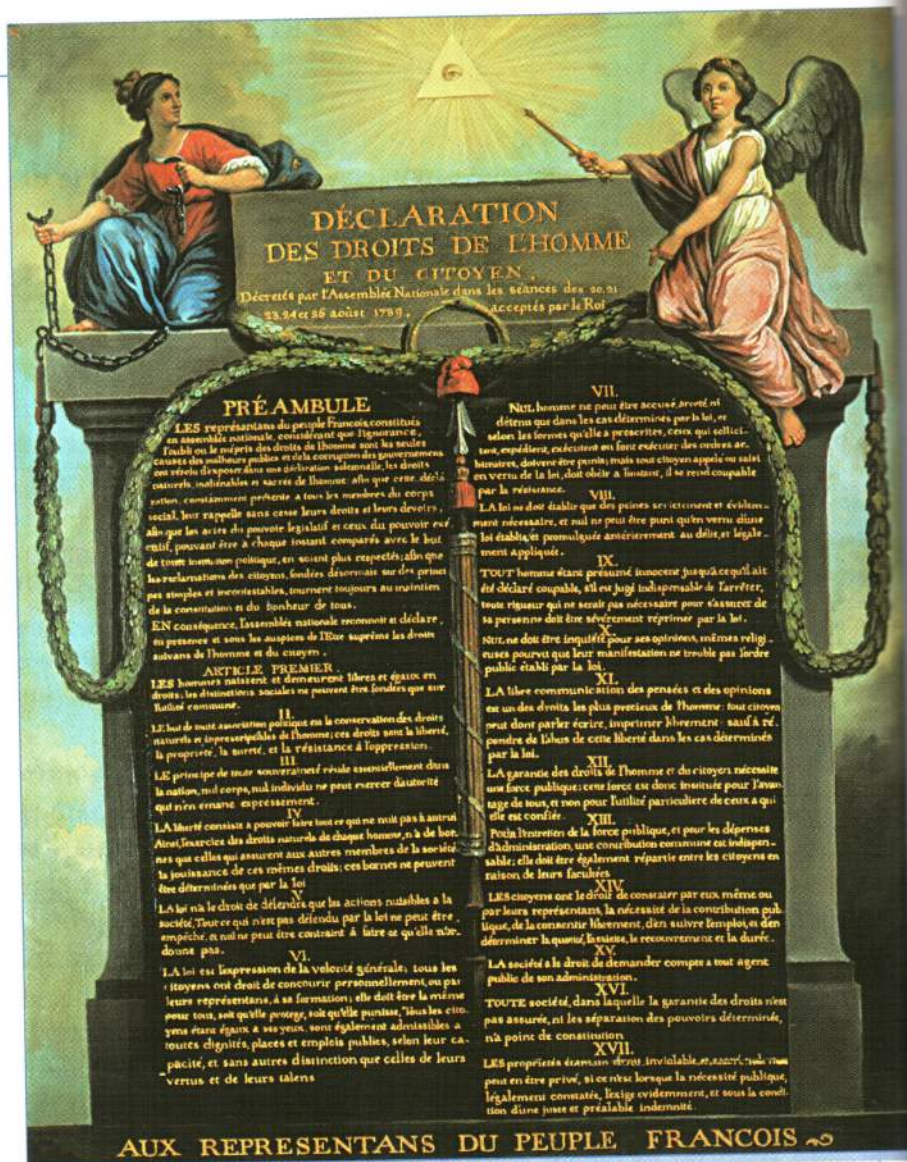 DÉCLARATION
DES DROITS DE L'HOMME
ET DU CITOYEN.
Décretés par l'Assemblée Nationale dans les séances des 20.21
23.24 et 26 août 1789, acceptés par le Roi
PRÉAMBULE
LES représentans du peuple François constitués
en assemblée nationale, considérant que l'ignorance,
l'oubli ou le mépris des droits de l'homme sont les seules
causes des malheurs publics et de la corruption des gouvernemens
ont résolu d'exposer dans une déclaration solemnelle, les droits
naturels, inaliénables et sacrés de l'homme: afin que cette décla
ration, constamment présente a tous les membres du corps
social, leur rappelle sans cesse leurs droits et leurs devoirs,
afin que les actes du pouvoir législatif et ceux du pouvoir exé
cutif, pouvant être a chaque instant comparés avec le but
de toute institution politique, en soient plus respectés; afin que
les reclamations des citoyens, fondées désormais sur des princi
pes simples et incontestables, tournent toujours au maintien
de la constitution et du bonheur de tous.
EN conséquence, l'assemblée nationale reconnoit et déclare,
en presence et sous les auspices de l'Etre suprême les droits
suivans de l'homme et du citoyen.
ARTICLE PREMIER.
LES hommes naissent et demeurent libres et égaux en
droits, les distinctions sociales ne peuvent être fondées que sur
l'utilité commune.
II.
LE but de toute association politique est la conservation des droits
naturels et imprescriptibles de l'homme; ces droits sont la liberté,
la propriété, la sureté, et la résistance à l'oppression.
III.
LE principe de toute souveraineté réside essentiellement dans
la nation, nul corps, nul individu ne peut exercer d'autorité
qui n'en émane expressément.
IV
LA liberté consiste a pouvoir faire tout ce qui ne nuit pas à autrui
Ainsi, l'exercice des droits naturels de chaque homme, n'a de bor
nes que celles qui assurent aux autres membres de la société
la jouissance de ces mêmes droits; ces bornes ne peuvent
être déterminées que par la loi
V.
LA loi n'a le droit de défendre que les actions nuisibles à la
société. Tout ce qui n'est pas défendu par la loi ne peut être
empêché, et nul ne peut être contraint à faire ce qu'elle n'or
donne pas.
VI.
LA loi est l'expression de la volonté générale; tous les
citoyens ont droit de concourir personnellement, ou par
leurs représentans, à sa formation; elle doit être la même
pour tous, soit qu'elle protege, soit qu'elle punisse, Tous les cito
yens étant égaux a ses yeux, sont également admissibles a
toutes dignités, places et emplois publics, selon leur ca
pacité, et sans autres distinction que celles de leurs
vertus et de leurs talens
VII.
NUL homme ne peut être accusé, arreté ni
détenu que dans les cas déterminés par la loi, et
selon les formes qu'elle a prescrites, ceux qui sollici
tent, expédient, exécutent ou font exécuter des ordres ar
bitraires, doivent être punis; mais tout citoyen appelé ou saisi
en vertu de la loi, doit obéir a l'instant, il se rend coupable
par la résistance.
VIII.
LA loi ne doit établir que des peines strictement et évidem
ment nécessaire, et nul ne peut être puni qu'en vertu d'une
loi établie, et promulguée antérieurement au délit, et légale
ment appliquée.
IX.
TOUT homme étant présumé innocent jusqu'a ce qu'il ait
été déclaré coupable, s'il est jugé indispensable de l'arrêter,
toute rigueur qui ne serait pas nécessaire pour s'assurer de
sa personne doit être sévèrement réprimée par la loi.
X.
NUL ne doit être inquiété pour ses opinions, mêmes religi
euses pourvu que leur manifestation ne trouble pas l'ordre
public établi par la loi.
XI.
LA libre communication des pensées et des opinions
est un des droits les plus precieux de l'homme: tout citoyen
peut dont parler écrire, imprimer librement: sauf à ré
pondre de l'abus de cette liberté dans les cas déterminés
par la loi.
XII.
LA garantie des droits de l'homme et du citoyen nécessite
une force publique; cette force est donc instituée pour l'avan
tage de tous, et non pour l'utilité particuliere de ceux a qui
elle est confiée.
XIII.
POUR l'entretien de la force publique, et pour les dépenses
d'administration, une contribution commune est indispen
sable; elle doit être également répartie entre les citoyens en
raison de leurs facultées
XIV.
LES citoyens ont le droit de constater par eux même ou
par leurs représentans, la nécessité de la contribution pub
lique, de la consentir librement, d'en suivre l'emploi, et d'en
déterminer la quotité, l'assiette, le recouvrement et la durée.
XV.
LA société a le droit de demander compte a tout agent
public de son administration.
XVI.
TOUTE société, dans laquelle la garantie des droits n'est
pas assurée, ni les séparation des pouvoirs déterminés,
n'a point de constitution
XVII.
LES propriétés étant un droit inviolable et sacré, nul ne
peut en être privé, si ce n'est lorsque la nécessité publique,
légalement constatée, l'exige evidemment, et sous la condi
tion d'une juste et préalable indemnité.
AUX REPRESENTANS DU PEUPLE FRANCOIS